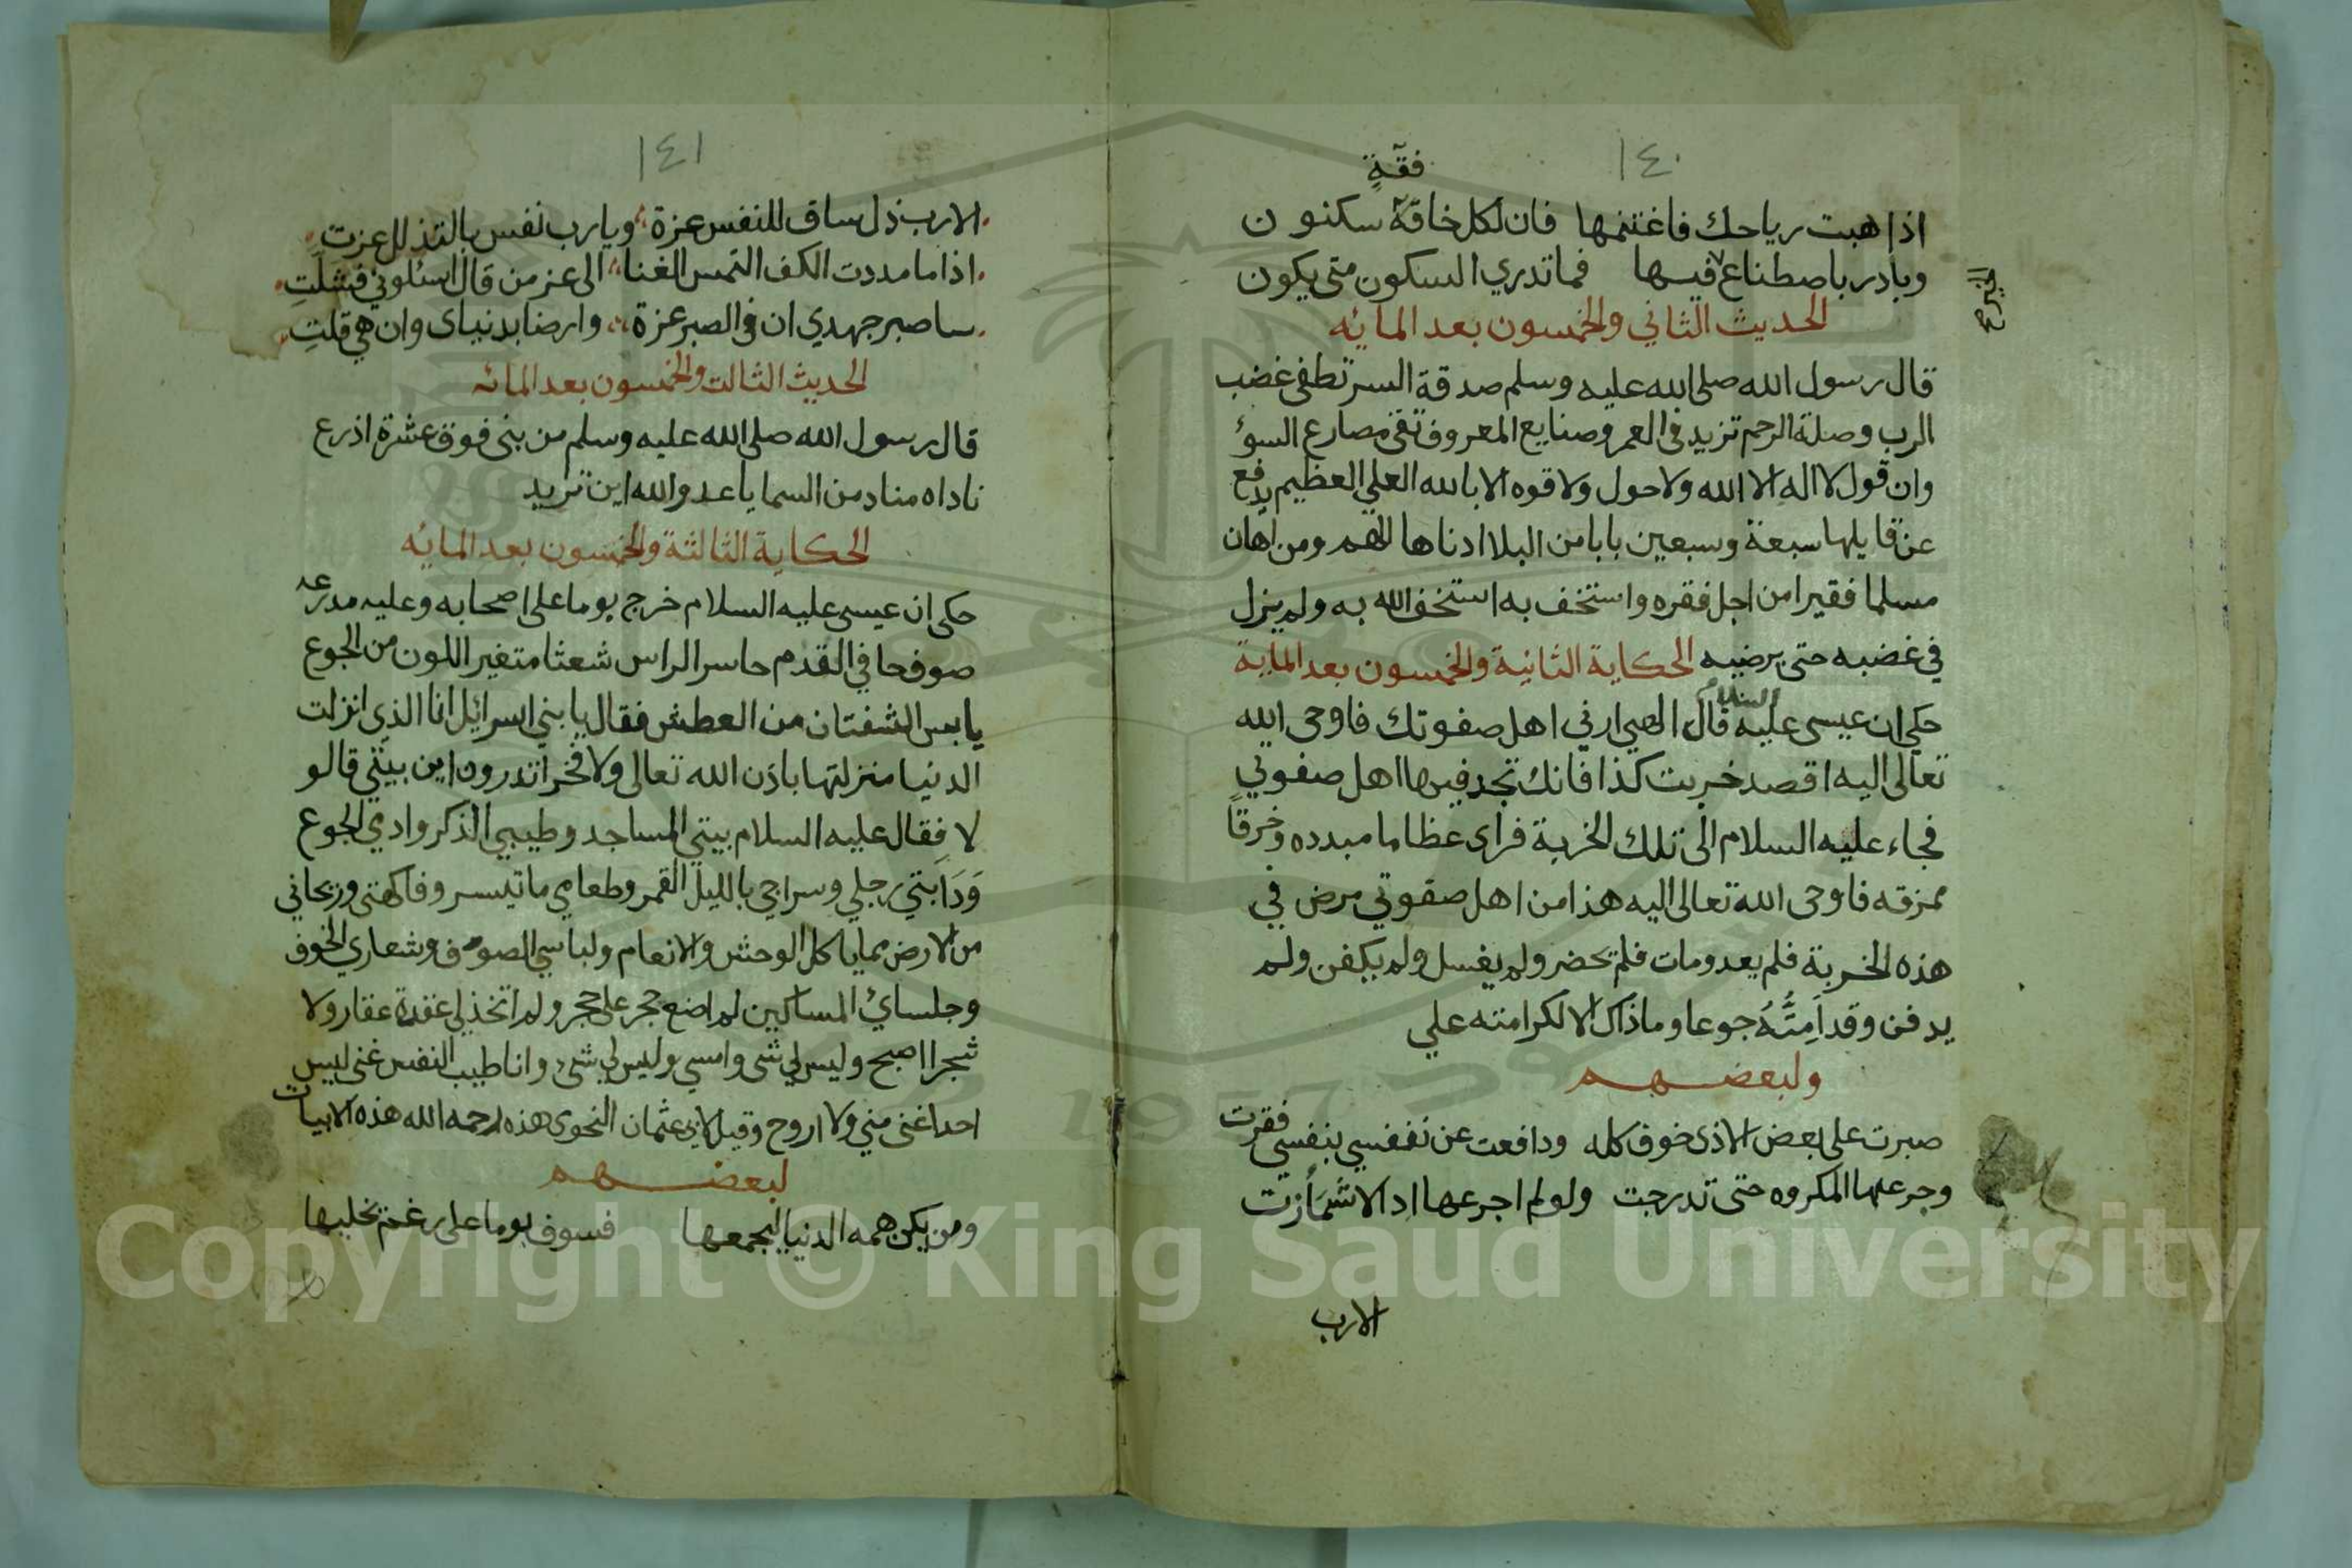 ١٤٠
فقة
اذا هبت رياحك فاغتنمها فان لكل خافقة سكنون
وبادر باصطناع فيها فما تدري السكون متى يكون
الحديث الثاني والخمسون بعد المائه
قال رسول الله صلى الله عليه وسلم صدقة السر تطفى غضب
الرب وصلة الرحم تزيد في العمر وصنايع المعروف تقى مصارع السوء
وان قول لا اله الا الله ولا حول ولا قوه الا بالله العلي العظيم يدفع
عن قايلها سبعة وسبعين بابا من البلا ادناها الهم ومن اهان
مسلما فقيرا من اجل فقره واستخف به استخف الله به ولم يزل
في غضبه حتى يرضيه الحكاية الثانية والخمسون بعد الماية
حكى ان عيسى عليه السلام قال الهي ارني اهل صفوتك فاوحى الله
تعالى اليه اقصد خربت كذا فانك تجد فيها اهل صفوتي
فجاء عليه السلام الى تلك الخربة فراى عظاما مبدده وخرقا
ممزقه فاوحى الله تعالى اليه هذا من اهل صفوتي مرض في
هذه الخربة فلم يعد ومات فلم يحضر ولم يغسل ولم يكفن ولم
يدفن وقد اَمِتُّهُ جوعا وما ذاك الا لكرامته علي
ولبعضهم
صبرت على بعض الاذى خوف كله ودافعت عن نففسي بنفسي فقرت
وجرعتها المكروه حتى تدرجت ولو لم اجرعها اذا لاشمأزت
الارب
١٤١
الارب ذل ساق للنفس عزة ويارب نفس بالتذلل عزت
اذا ما مددت الكف التمس الغنا الى عز من قال اسئلوني فشلت
ساصبر جهدي ان في الصبر عزة وارضا بدنياى وان هي قلت
الحديث الثالت والخمسون بعد المائه
قال رسول الله صلى الله عليه وسلم من بنى فوق عشرة اذرع
ناداه مناد من السما يا عدو الله اين تريد
الحكاية الثالثة والخمسون بعد المايه
حكى ان عيسى عليه السلام خرج يوما على اصحابه وعليه مدرعه
صوف حافي القدم حاسر الراس شعثا متغير اللون من الجوع
يابس الشفتان من العطش فقال يا بني اسرائل انا الذي انزلت
الدنيا منزلتها باذن الله تعالى ولا فخر اتدرون اين بيتي قالو
لا فقال عليه السلام بيتي المساجد وطيبي الذكر وادي الجوع
وَدَابتي رجلي وسراجي بالليل القمر وطعامي ما تيسر وفاكهتى وريحاني
من الارض مما ياكل الوحش والانعام ولباسي الصوف وشعاري الخوف
وجلساي المساكين لم اضع حجر على حجر ولم اتخذ لي عقدة عقار ولا
شجرا اصبح وليس لي شى وامسي وليس لي شى وانا طيب النفس غنى ليس
احدا غنى مني ولا اروح وقيل لابي عثمان النحوى هذه رحمه الله هذه الابيات
لبعضهم
ومن يكن همه الدنيا ليجمعها فسوف يوما على رغم يخليها
Copyright © King Saud University
1957